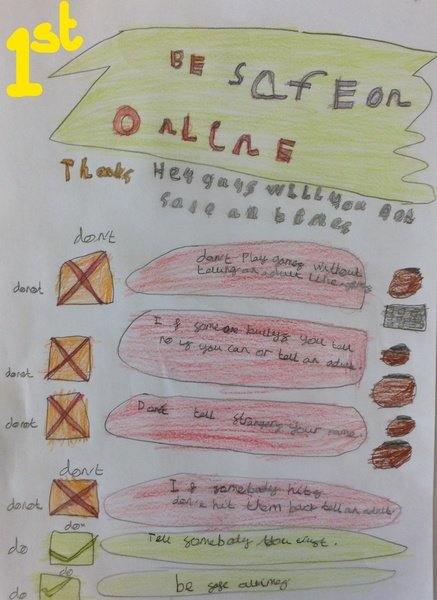 1st
BE SAFE on
OnLinE
Thanks Hey guys will you
safe all times
don't
donot
don't Play games without
telling an adult
donot
If someone bullys you tell
no if you can or tell an adult
donot
Dont tell strangers your name
don't
donot
If somebody hits
don't hit them back tell an adult
do
Tell somebody you trust.
do
do
be safe